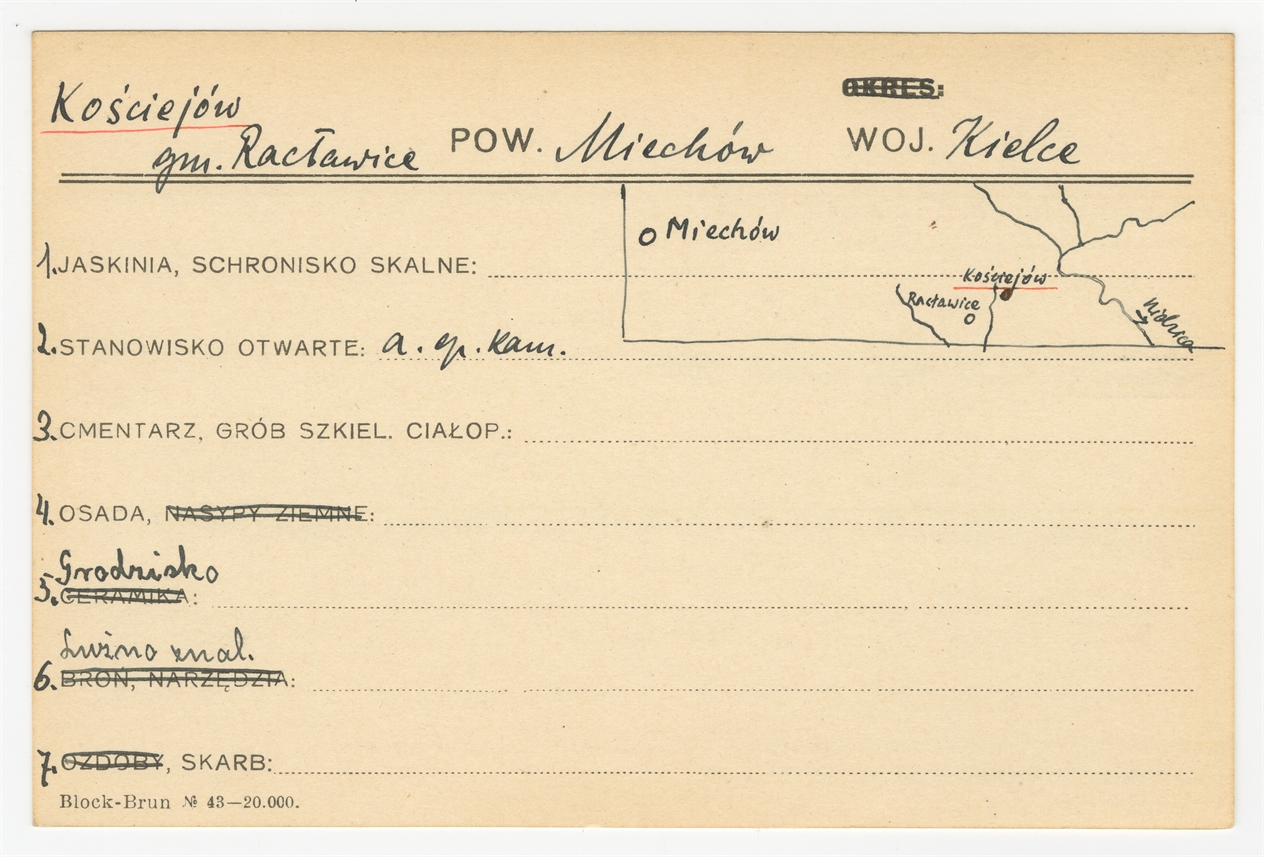 OKRES:
Kościejów
gm. Racławice POW. Miechów WOJ. Kielce
Miechów
Kościejów
Racławice
Nidzica
1. JASKINIA, SCHRONISKO SKALNE:
2. STANOWISKO OTWARTE: a. ep. kam.
3. CMENTARZ, GRÓB SZKIEL. CIAŁOP.:
4. OSADA, NASYPY ZIEMNE:
Grodzisko
5. CERAMIKA:
Luźno znal.
6. BROŃ, NARZĘDZIA:
7. OZDOBY, SKARB:
Block-Brun № 43—20.000.